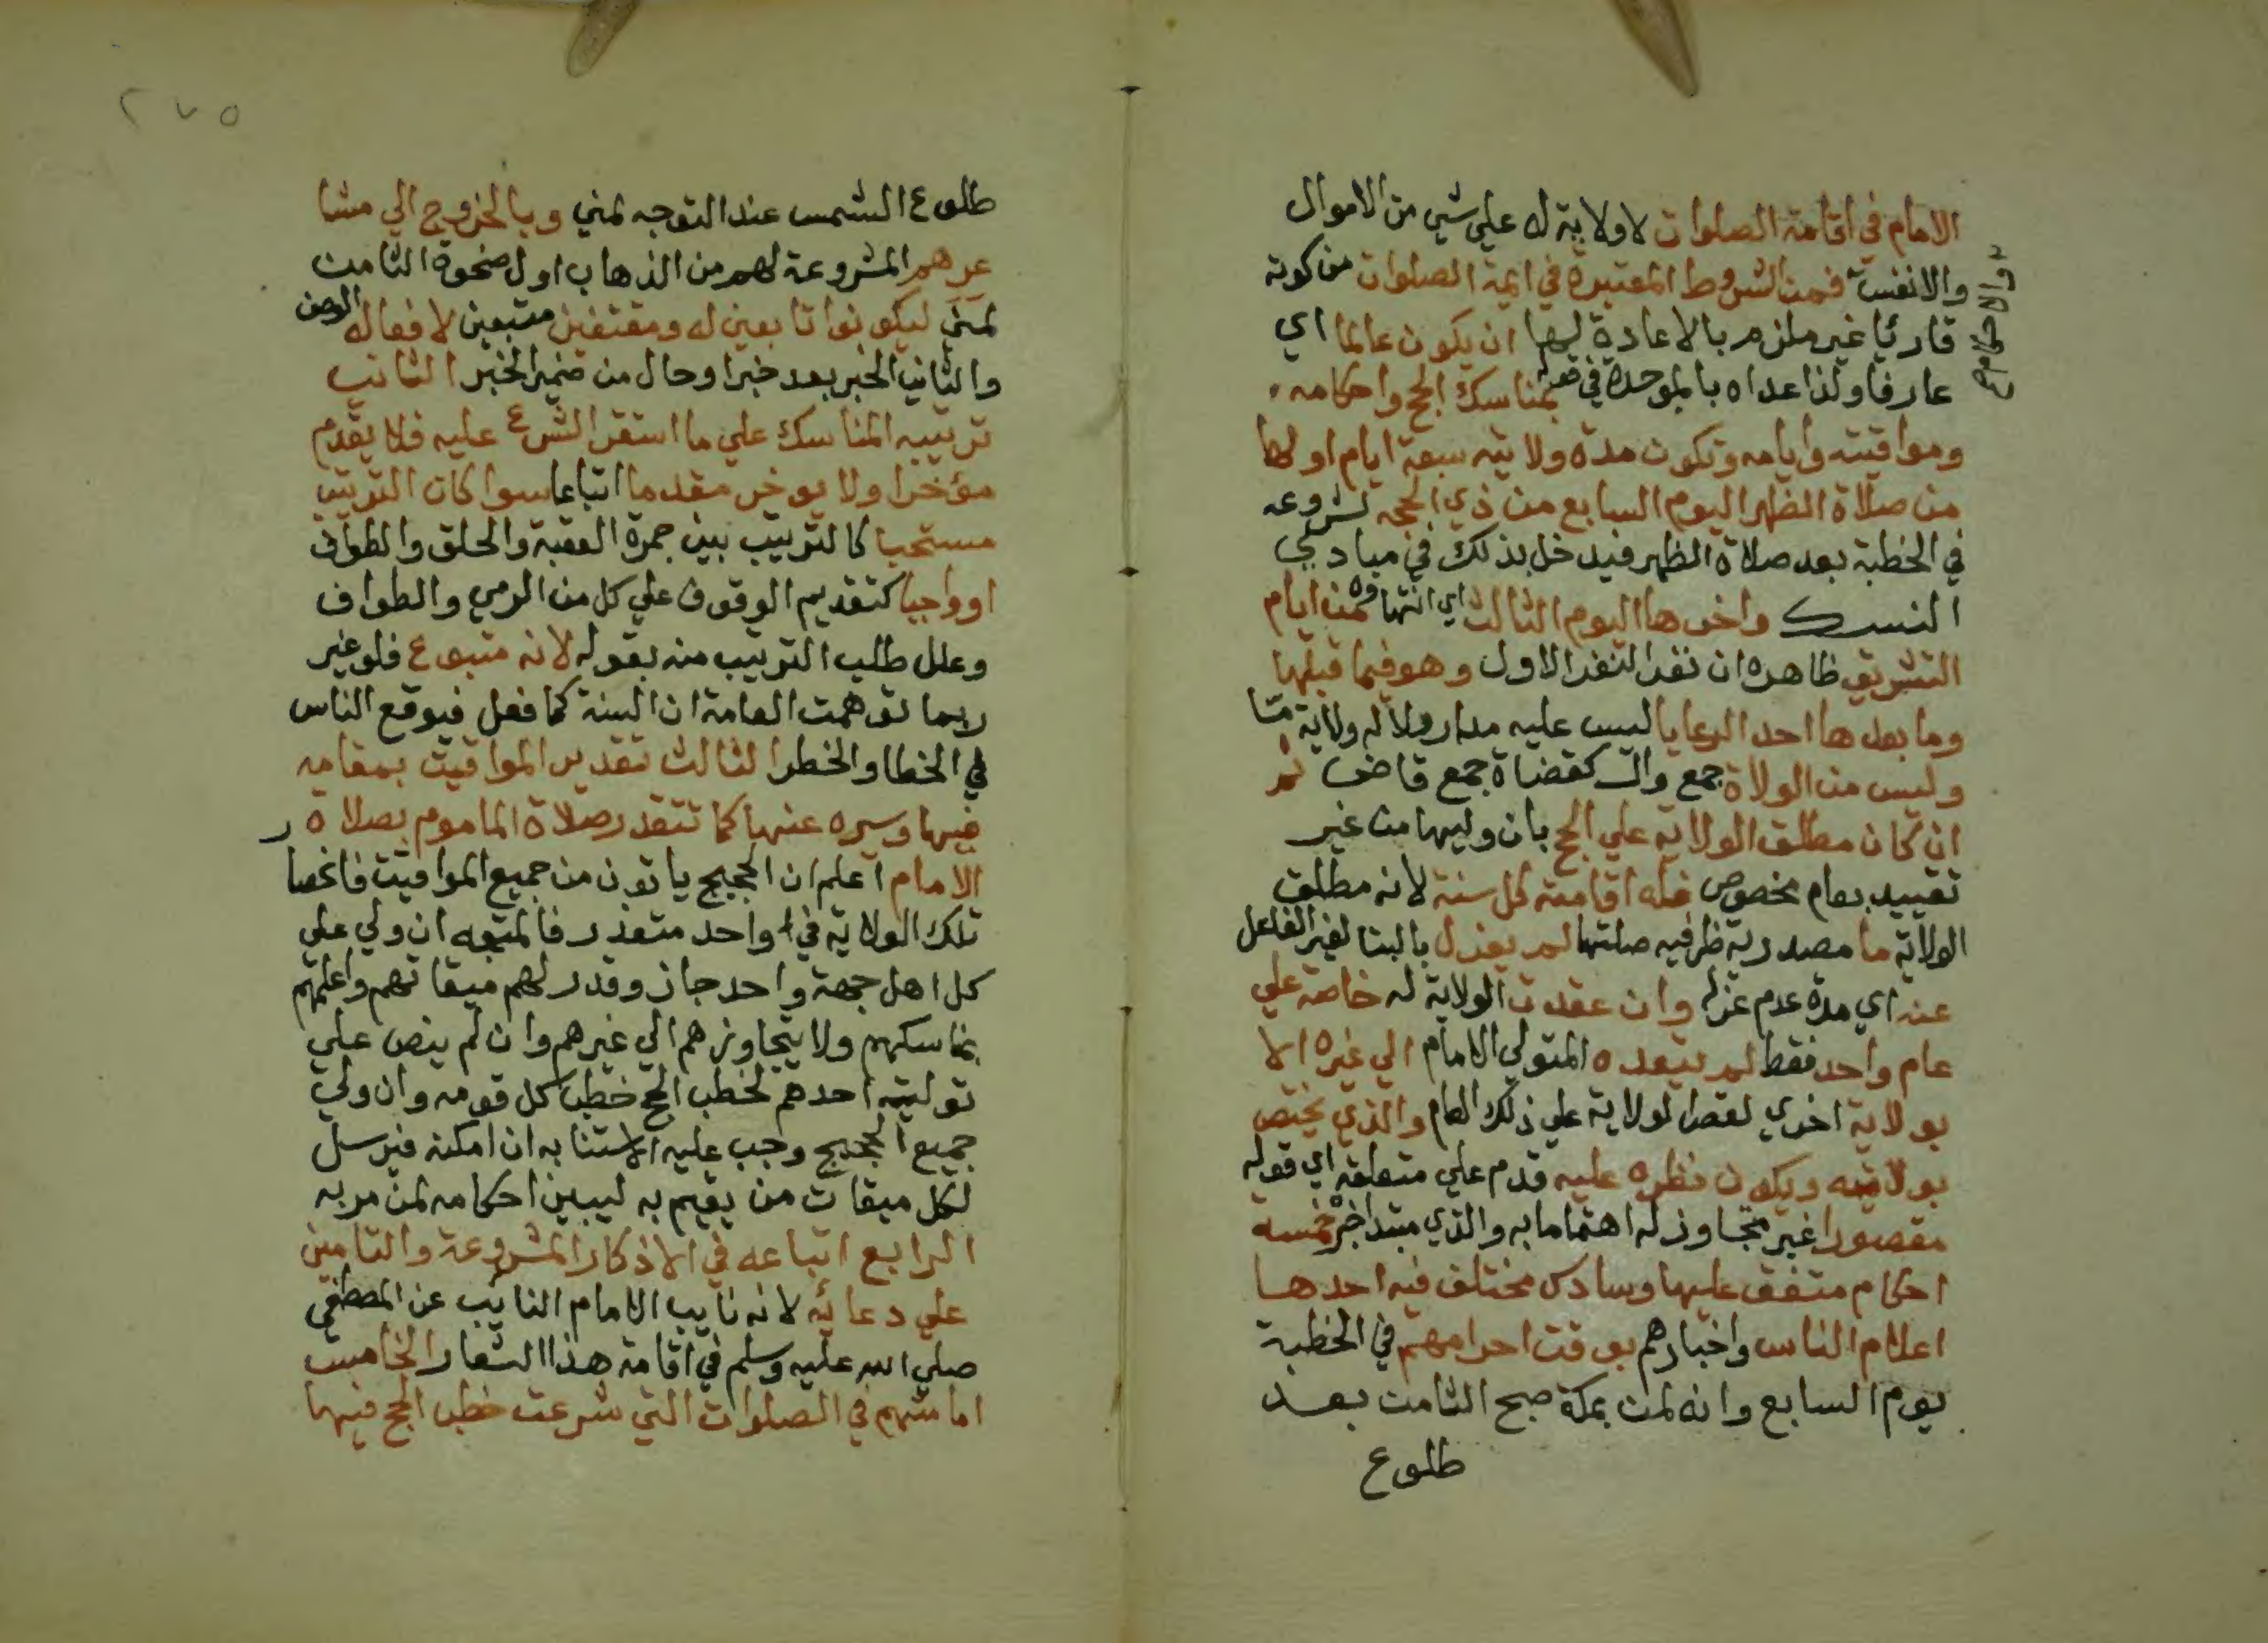 الامام في اقامة الصلوات لا ولاية له علي شي من الاموال
والانفس فمن الشروط المعتبرة في ايمة الصلوات من كونه
قارئا غير ملزم بالاعادة لها ان يكون عالما اي
عارفا ولذا عداه بالموحدة في قوله بمناسك الحج واحكامه
ومواقيته وايامه وتكون مدة ولايته سبعة ايام اولها
من صلاة الظهر اليوم السابع من ذي الحجه لشروعه
في الخطبة بعد صلاة الظهر فيدخل بذلك في مبادي
النسك واخرها اليوم الثالث اي انتهاوه من ايام
التشريق ظاهره ان نفر النفر الاول وهو فيما قبلها
وما بعدها احد الرعايا ليس عليه مدار ولا له ولاية
وليس من الولاة جمع وال كقضاة جمع قاض ثم
ان كان مطلق الولايه علي الحج بان وليها من غير
تقييد بعام مخصوص فله اقامته كل سنة لانه مطلق
الولاية ما مصدرية ظرفيه صلتها لم يعزل بالبنا لغير الفاعل
عنه اي مدة عدم عزله وان عقدت الولاية له خاصة علي
عام واحد فقط لم يتعده المتولي الامام الي غيره الا
بولاية اخري لقصر الولاية علي ذلك العام والذي يختص
بولايته ويكون نظره عليه قدم علي متعلقه اي قوله
مقصورا غير متجاوز له اهتماما به والذي مبتدا خبره خمسه
احكام متفق عليها وسادس مختلف فيه احدها
اعلام الناس واخبارهم بوقت احرامهم في الخطبة
يوم السابع وانه لمن بمكة صبح الثامن بعد
طلوع
والاحكام
٢٧٥
طلوع الشمس عند التوجه لمني وبالخروج الي مشا
عرهم المشروعة لهم من الذهاب اول ضحوة الثامن
لمني ليكونوا تابعين له ومقتفين متبعين لافعاله
والثاني الخبر بعد خبر او حال من ضمير الخبر الثاني
ترتيبه المناسك علي ما استقر الشرع عليه فلا يقدم
مؤخرا ولا يوخر مقدما اتباعا سوا كان الترتيب
مستحبا كالترتيب بين جمرة العقبة والحلق والطواف
او واجبا كتقديم الوقوف علي كل من الرمي والطواف
وعلل طلب الترتيب منه بقوله لانه متبوع فلو غير
ربما توهمت العامة ان السنة كما فعل فيوقع الناس
في الخطا والخطر الثالث تقدير المواقيت بمقامه
فيها وسيره عنها كما تتقدر صلاة الماموم بصلاة
الامام اعلم ان الحجيج ياتون من جميع المواقيت فانحصا
تلك الولاية في واحد متعذر فالمتوجه ان ولي علي
كل اهل جهة واحد جاز وقدر لهم ميقاتهم واعلمهم
بمناسكهم ولا يتجاوزهم الي غيرهم وان لم ينص علي
توليته احدهم لخطب الحج خطب كل قومه وان ولي
جميع الحجيج وجب عليه الاستنابه ان امكنه فيرسل
لكل ميقات من يقيم به ليبين احكامه لمن مر به
الرابع اتباعه في الاذكار المشروعة والتامين
علي دعائه لانه نايب الامام النايب عن المصطفي
صلي الله عليه وسلم في اقامة هذا الشعار الخامس
امامتهم في الصلوات التي شرعت خطب الحج فيها